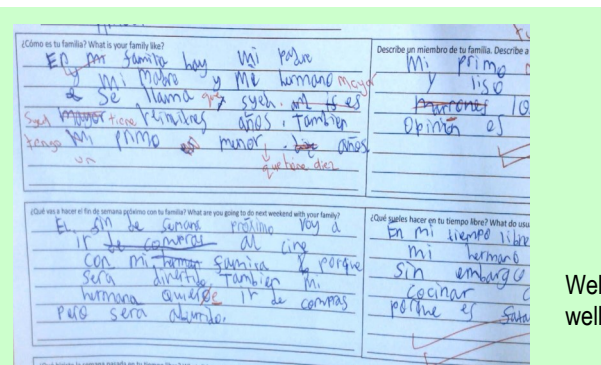 ¿Cómo es tu familia? What is your family like?
En mi familia hay mi padre
y mi madre y me hermano mayor
Se llama que syeh. es
Syed mayor tiene años. Tambien
tengo mi primo menor. años.
un que tiene diez
Describe un miembro de tu familia. Describe a
Mi primo
y liso
marrones lo
Opinión es
¿Qué vas a hacer el fin de semana próximo con tu familia? What are you going to do next weekend with your family?
EL fin de semana próximo voy a
ir de compras al cine
con mi familia porque
será divertido, Tambien mi
hermana quiere ir de compras
pero será aburrido.
¿Qué sueles hacer en tu tiempo libre? What do usu
En mi tiempo libre
mi hermano
sin embargo
cocinar
porque es
Wel
well